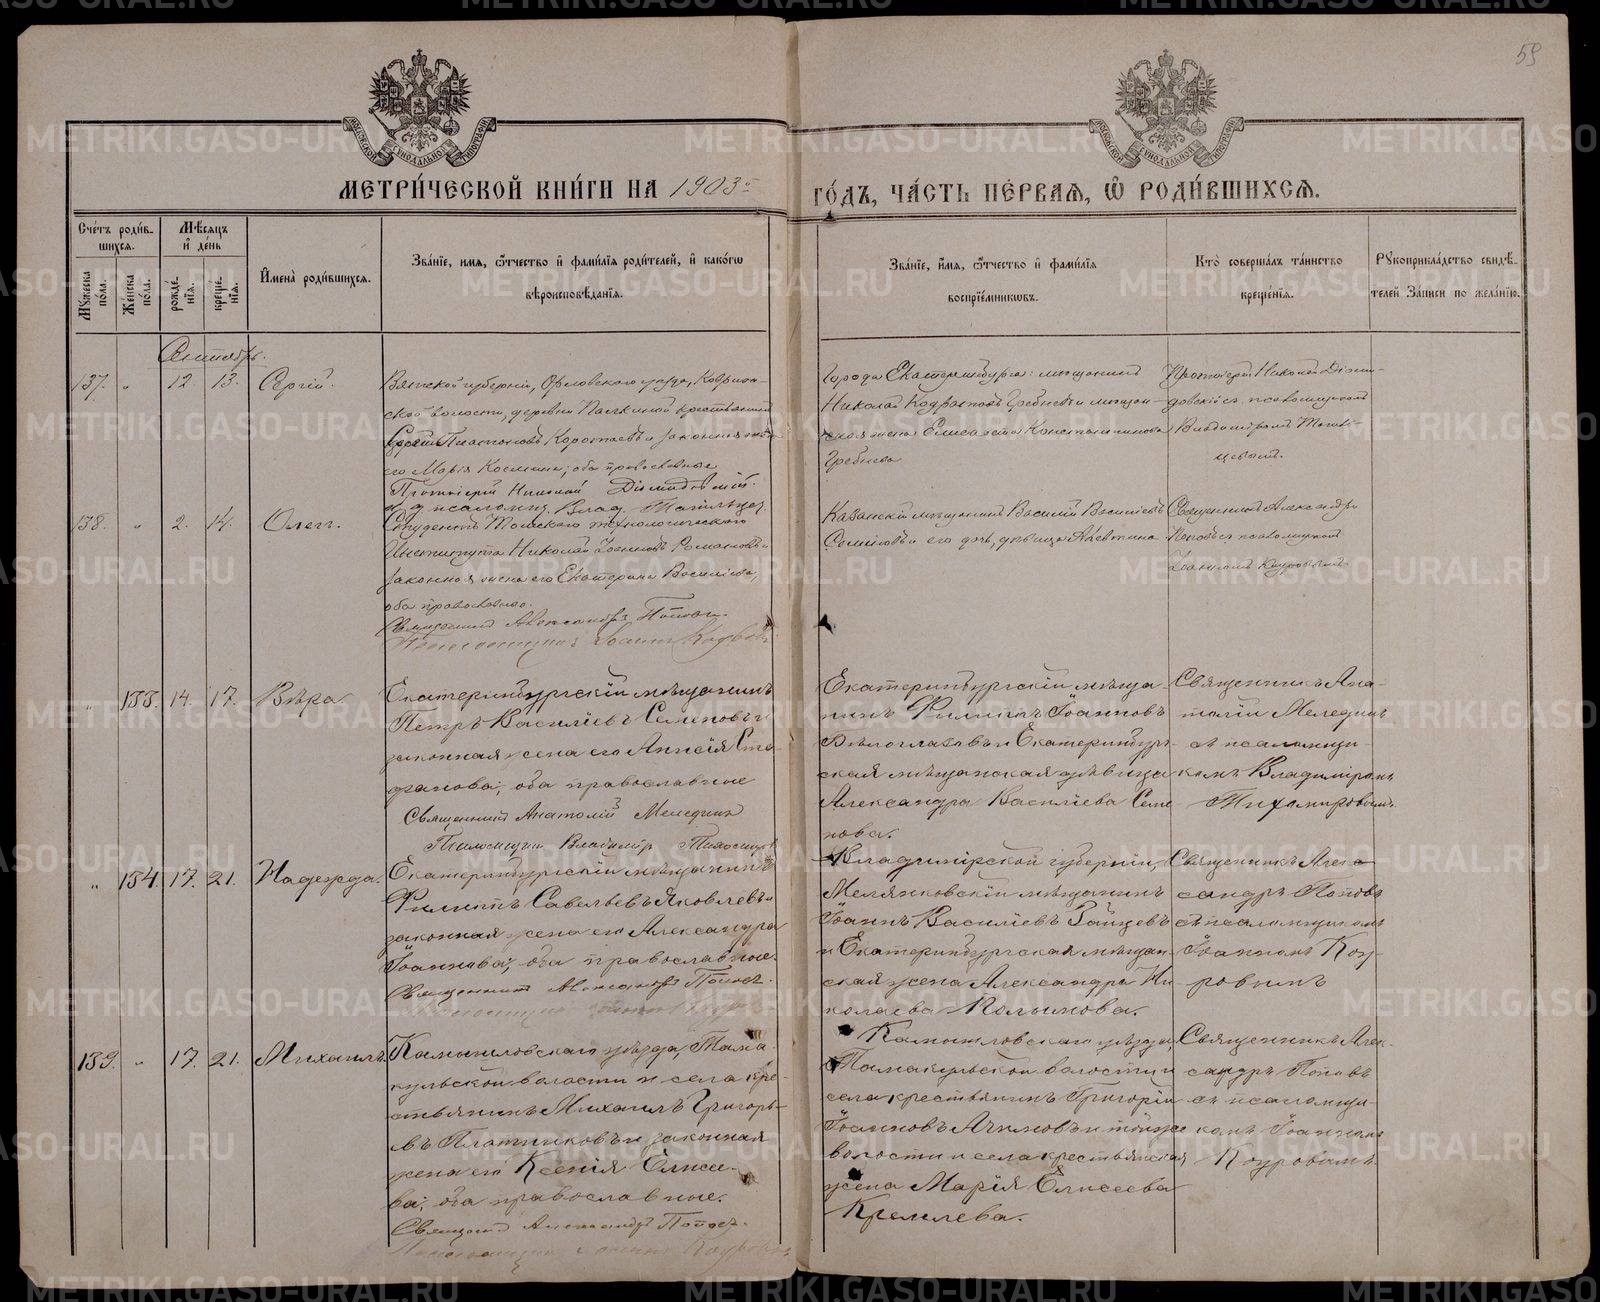 59
МОСКОВСКОЙ СѴНОДАЛЬНОЙ ТИПОГРАФІИ
МОСКОВСКОЙ СѴНОДАЛЬНОЙ ТИПОГРАФІИ
МЕТРИ́ЧЕСКОЙ КНИ́ГИ НА 1903й ГО́ДЪ, ЧА́СТЬ ПЕ́РВАЯ, Ѿ РОДИ́ВШИХСЯ.
Сче́тъ роди́вшихся.
Му́жеска по́ла.
Же́нска по́ла.
Мѣ́сяцъ и҆ де́нь
рожде́нїя.
креще́нїя.
И҆мена̀ роди́вшихся.
Зва́нїе, и҆́мя, ѻ҆́тчество и҆ фами́лїя роди́телей, и҆ како́гѡ
вѣроисповѣ́данїя.
Зва́нїе, и҆́мя, ѻ҆́тчество и҆ фами́лїя
воспрїе́мникѡвъ.
Кто̀ соверша́лъ та́инство
креще́нїя.
Рꙋкоприкла́дство свидѣ́телей за́писи по жела́нїю.
Сентябрь.
137. " 12 13. Сергій.
Вятской губерніи, Орловскаго уѣзда,
ской волости, деревни крестьянинъ
Сергій Платоновъ Коротаевъ и законная жена
его Марія Космина; оба православные
Протоіерей Николай Діомидовскій
и д. псаломщ. Влад.
Города Екатеринбурга: мѣщанинъ
Николай Гребневъ и мѣщан-
ская жена Елисавета Константинова
Гребнева
Протоіерей Николай Діоми-
довскій съ псаломщикомъ
Владиміромъ
138. " 2. 14. Олегъ.
Студентъ Томскаго технологическаго
Института Николай Іоанновъ Романовъ и
законная жена его Екатерина Василіева,
оба православные.
Священникъ Александръ Поповъ.
Псаломщикъ Іоаннъ Коуровъ
Казанскій мѣщанинъ Василій Василіевъ
и его дочь, дѣвица Алевтина
Священникъ Александръ
Поповъ съ псаломщикомъ
Іоанномъ Коуровымъ
" 133. 14. 17. Вѣра.
Екатеринбургскій мѣщанинъ
Петръ Василіевъ Семеновъ и
законная жена его Анисія Сте-
фанова; оба православные
Священникъ Анатолій Мелединъ
Псаломщикъ Владиміръ Тихомировъ
Екатеринбургскій мѣща-
нинъ Филиппъ Іоанновъ
Бѣлоглазовъ и Екатеринбур-
ская мѣщанская дѣвица
Александра Василіева Семе-
нова.
Священникъ Ана-
толій Мелединъ
съ псаломщи-
комъ Владиміромъ
Тихомировымъ.
" 134. 17. 21. Надежда.
Екатеринбургскій мѣщанинъ
Филиппъ Савельевъ Яковлевъ и
законная жена его Александра
Іоаннова; оба православные.
Священникъ Александръ Поповъ.
Владимірской губерніи,
Меленковскій мѣщанинъ
Іоаннъ Василіевъ Зайцевъ
и Екатеринбургская мѣщан-
ская жена Александра Ни-
колаева Колымова.
Священникъ Алек-
сандръ Поповъ
съ псаломщикомъ
Іоанномъ Коу-
ровымъ
139. " 17. 21. Михаилъ.
Камышловскаго уѣзда, Тама-
кульской волости и села кре-
стьянинъ Михаилъ Григорь-
евъ Плотниковъ и законная
жена его Ксенія Елисе-
ва; оба православные.
Священникъ Александръ Поповъ.
Псаломщикъ Іоаннъ Коуровъ
Камышловскаго уѣзда,
Тамакульской волости и
села крестьянинъ Григорій
Іоанновъ Ачимовъ и той же
волости и села крестьянская
жена Марія Елисеева
Кремлева.
Священникъ Алек-
сандръ Поповъ
съ псаломщи-
комъ Іоанномъ
Коуровымъ.
METRIKI.GASO-URAL.RU